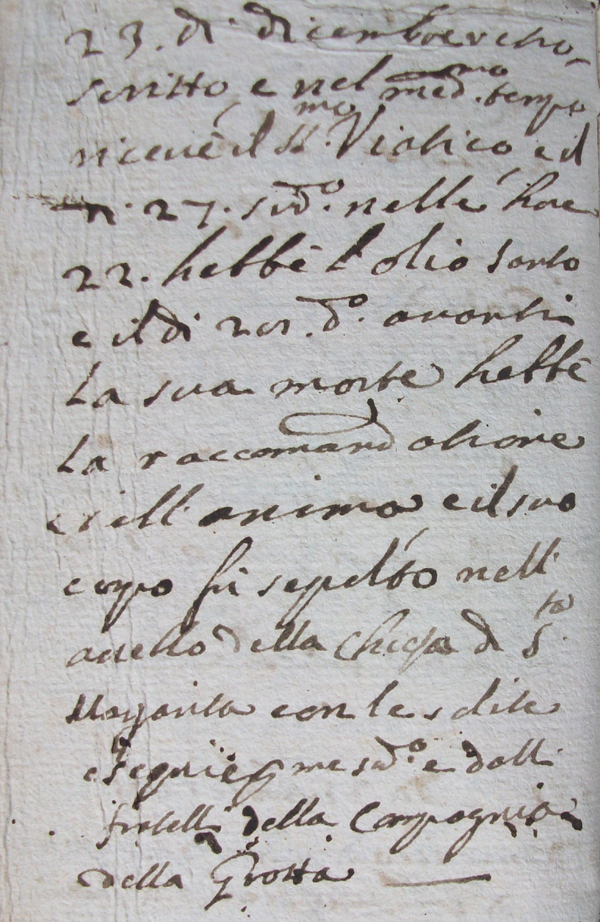 23. di dicembre retro-
scritto e nel med.mo tempo
ricevè il SS.mo Viatico, e il
27. sud.o nelle hore
22. hebbe l'olio santo
e il di d.o avanti
la sua morte hebbe
la raccomandatione
dell'anima e il suo
corpo fù sepolto nell
avello della Chiesa di S.ta
Margarita con le s dite
esequie me sud.o e dalli
fratelli della Compagnia
della Grotta